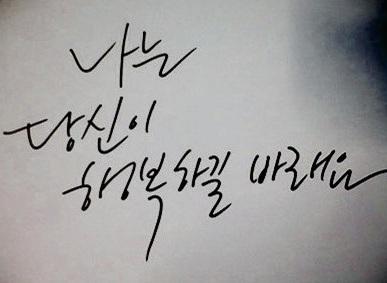 나는
당신이
행복하길 바래요